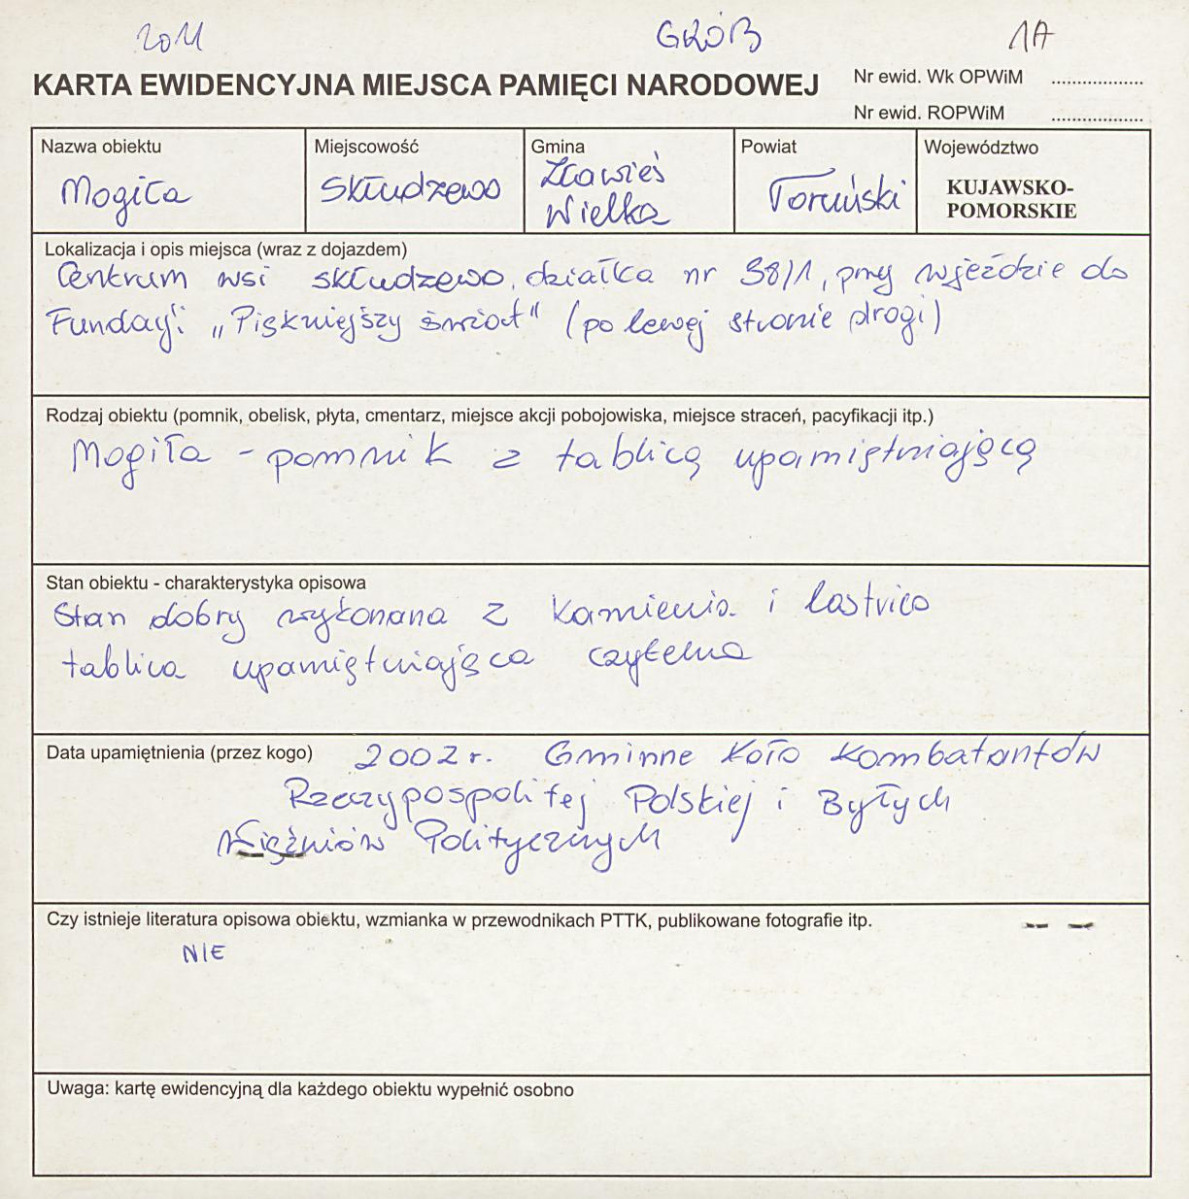 2011 GRÓB 1A
KARTA EWIDENCYJNA MIEJSCA PAMIĘCI NARODOWEJ
Nr ewid. Wk OPWiM ..................
Nr ewid. ROPWiM ..................
Nazwa obiektu
Mogiła
Miejscowość
Skłudzewo
Gmina
Zławieś
Wielka
Powiat
Toruński
Województwo
KUJAWSKO-
POMORSKIE
Lokalizacja i opis miejsca (wraz z dojazdem)
Centrum wsi Skłudzewo, działka nr 38/1, przy wjeździe do
Fundacji „Piękniejszy świat" (po lewej stronie drogi)
Rodzaj obiektu (pomnik, obelisk, płyta, cmentarz, miejsce akcji pobojowiska, miejsce straceń, pacyfikacji itp.)
Mogiła - pomnik z tablicą upamiętniającą
Stan obiektu - charakterystyka opisowa
Stan dobry wykonana z kamienia i lastrico
tablica upamiętniająca czytelna
Data upamiętnienia (przez kogo) 2002 r. Gminne Koło Kombatantów
Rzeczypospolitej Polskiej i Byłych
Więźniów Politycznych
Czy istnieje literatura opisowa obiektu, wzmianka w przewodnikach PTTK, publikowane fotografie itp. - -
NIE
Uwaga: kartę ewidencyjną dla każdego obiektu wypełnić osobno